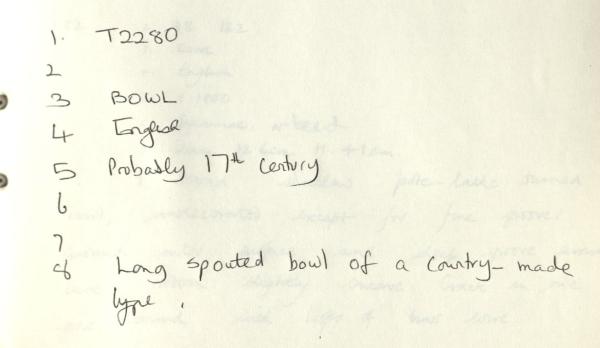 1. T2280
2
3 BOWL
4 English
5 Probably 17th century
6
7
8 Long spouted bowl of a country-made
type.